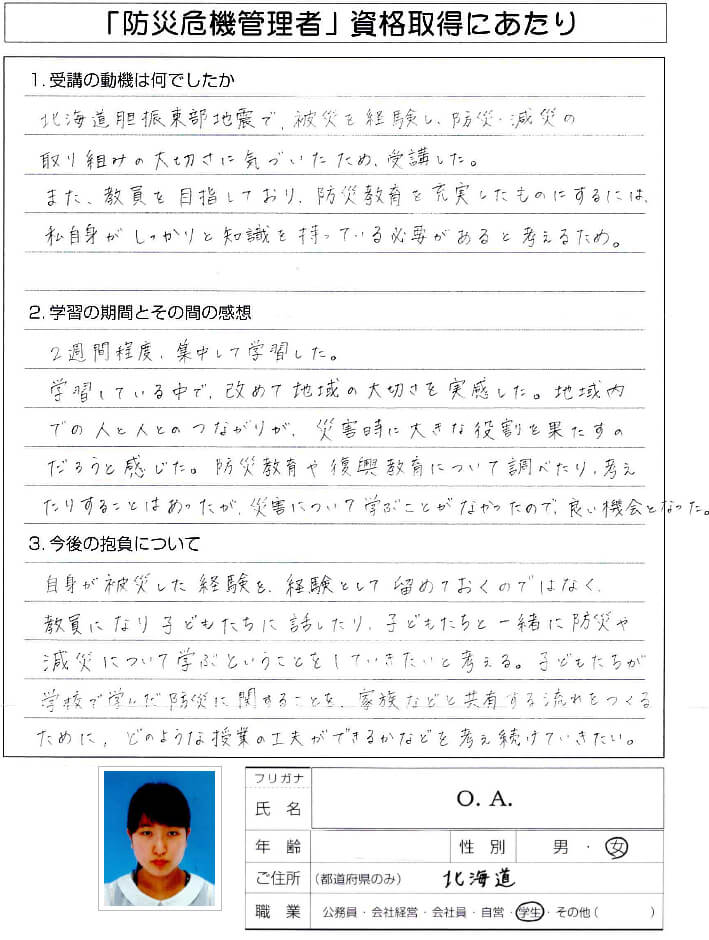 「防災危機管理者」資格取得にあたり
1.受講の動機は何でしたか
北海道胆振東部地震で、被災を経験し、防災・減災の
取り組みの大切さに気づいたため、受講した。
また、教員を目指しており、防災教育を充実したものにするには、
私自身がしっかりと知識を持っている必要があると考えるため。
2.学習の期間とその間の感想
2週間程度、集中して学習した。
学習している中で、改めて地域の大切さを実感した。地域内
での人と人とのつながりが、災害時に大きな役割を果たすの
だろうと感じた。防災教育や復興教育について調べたり、考え
たりすることはあったが、災害について学ぶことがなかったので、良い機会となった。
3.今後の抱負について
自身が被災した経験を、経験として留めておくのではなく、
教員になり子どもたちに話したり、子どもたちと一緒に防災や
減災について学ぶということをしていきたいと考える。子どもたちが
学校で学んだ防災に関することを、家族などと共有する流れをつくる
ために、どのような授業の工夫ができるかなどを考え続けていきたい。
フリガナ
氏 名 O. A.
年 齢 性 別 男・女
ご住所 (都道府県のみ) 北海道
職 業 公務員・会社経営・会社員・自営・学生・その他( )